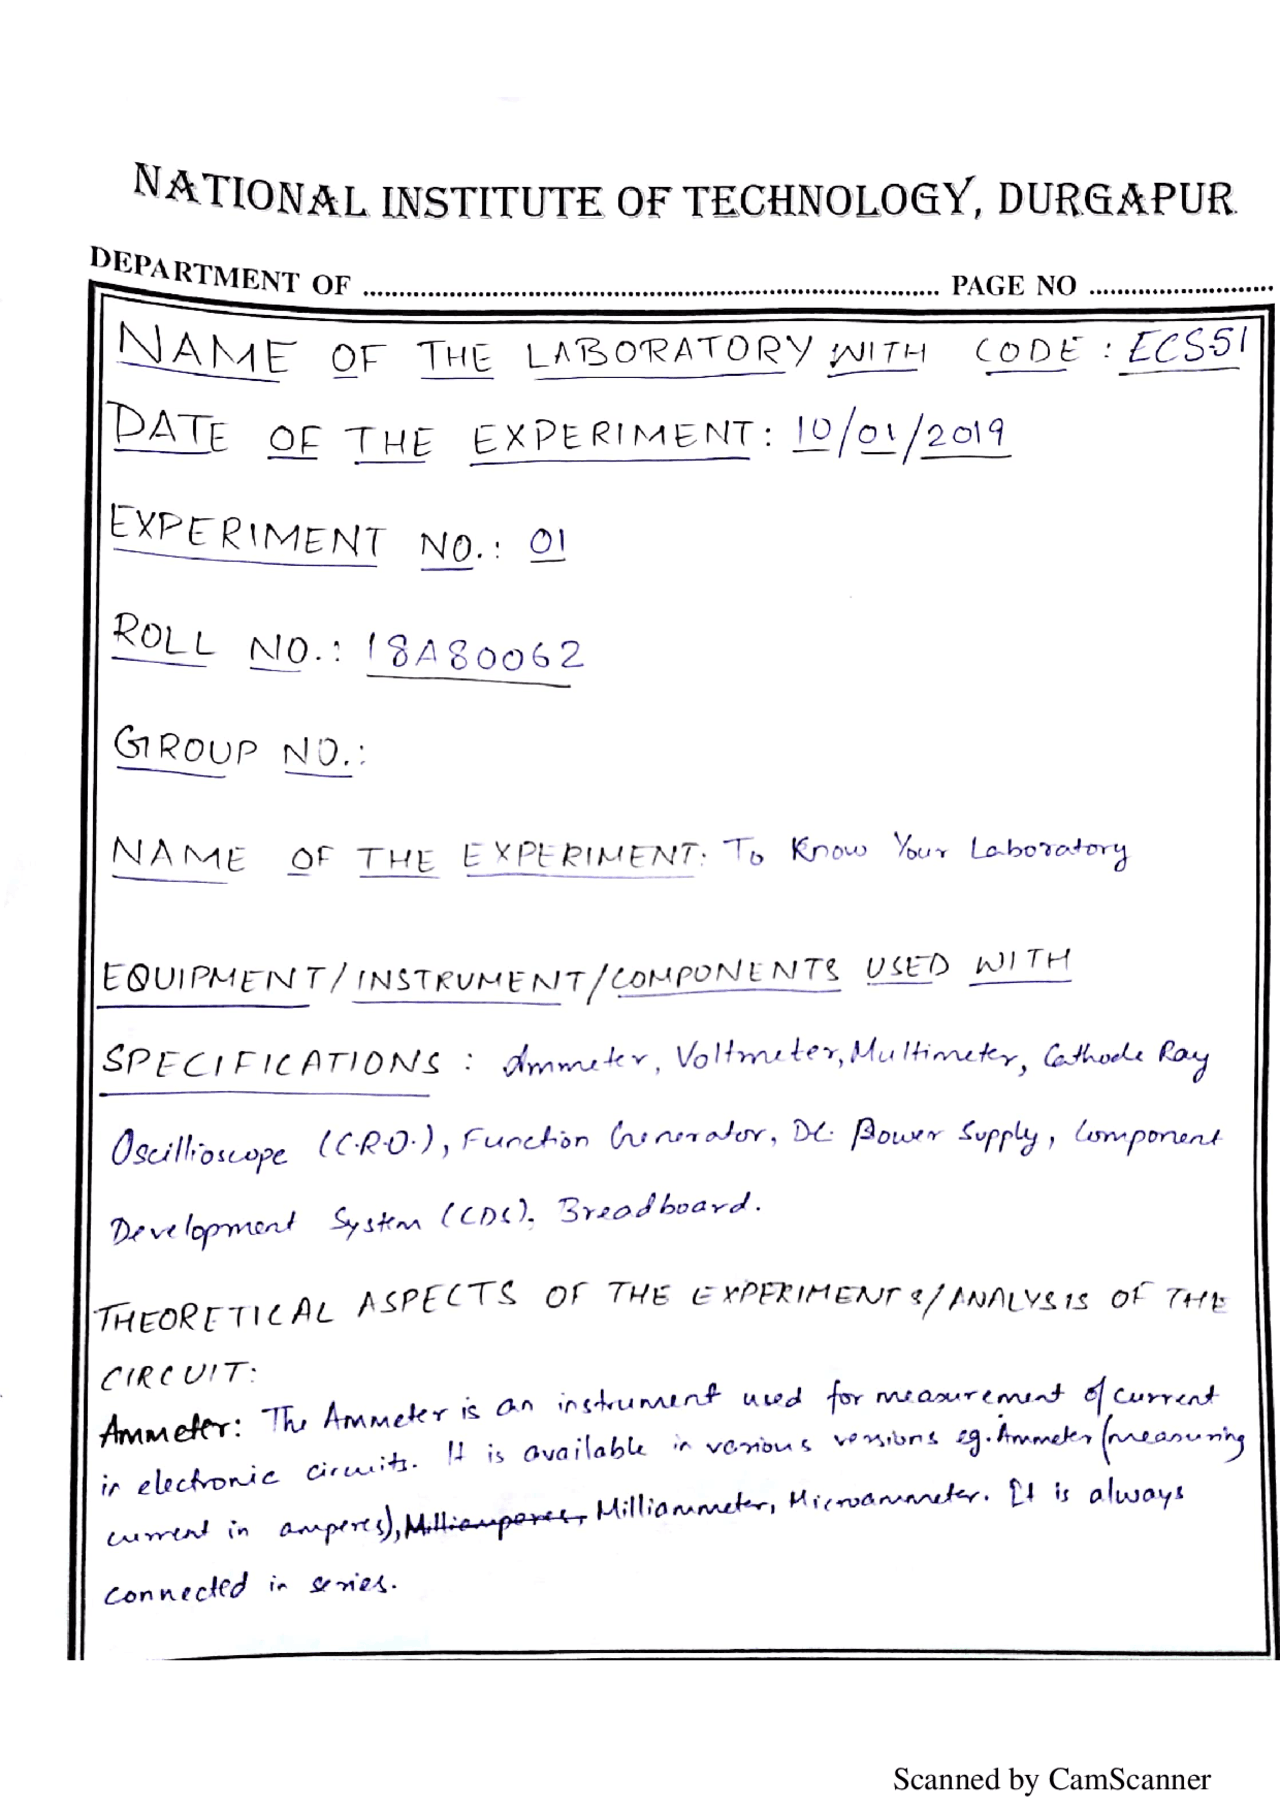 NATIONAL INSTITUTE OF TECHNOLOGY, DURGAPUR
DEPARTMENT OF ........................................ PAGE NO ....................
NAME OF THE LABORATORY WITH CODE : ECS51
DATE OF THE EXPERIMENT: 10/01/2019
EXPERIMENT NO.: 01
ROLL NO.: 18A80062
GROUP NO.:
NAME OF THE EXPERIMENT: To Know Your Laboratory
EQUIPMENT/INSTRUMENT/COMPONENTS USED WITH
SPECIFICATIONS : Ammeter, Voltmeter, Multimeter, Cathode Ray
Oscillioscope (C.R.O.), Function Generator, DC Power Supply, Component
Development System (CDS), Breadboard.
THEORETICAL ASPECTS OF THE EXPERIMENTS/ANALYSIS OF THE
CIRCUIT:
Ammeter: The Ammeter is an instrument used for measurement of current
in electronic circuits. It is available in various versions eg. Ammeter (measuring
current in amperes), Milliamperes, Milliammeter, Microammeter. It is always
connected in series.
Scanned by CamScanner